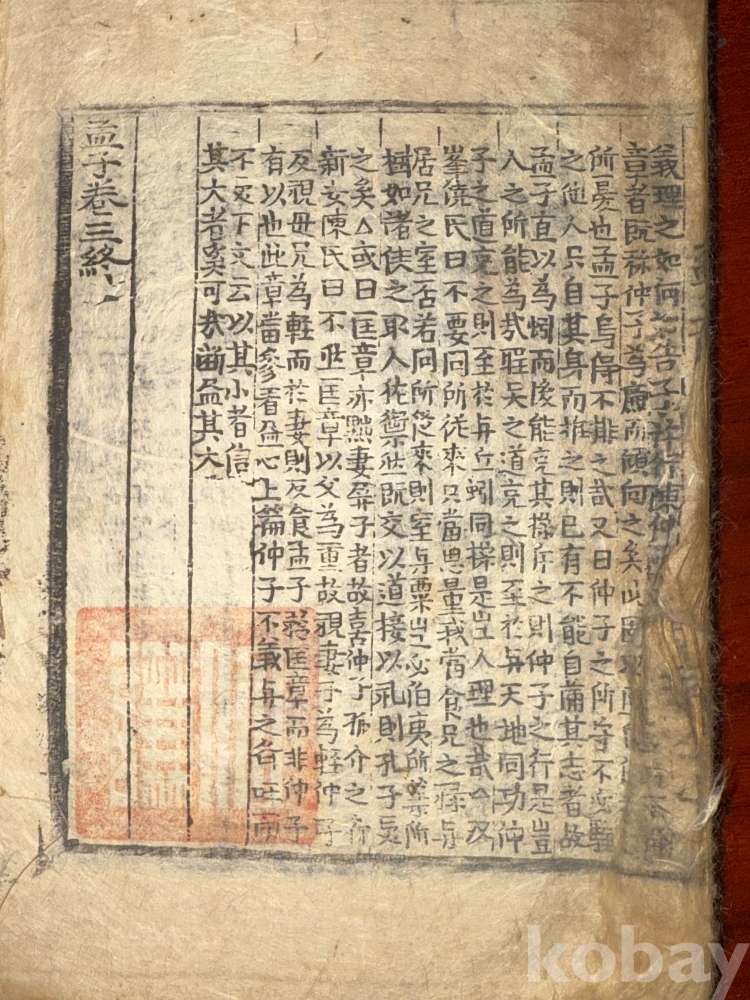 義理之如何告子許行陳仲
章者既称仲子為廉而傾向之矣此固以
所憂也孟子烏得不排之哉又曰仲子之所守不
之他人只自其身而推之則已有不能自蒲其志者故
孟子直以為蚓而後能充其操之則仲子之行是豈
人之所能為哉聖之道充之則至於与天地同功仲
子之道充之則至於与丘蚓同操是豈人理也哉△双
峯饒氏曰不要问所従来只當思量我當食兄之禄与
居兄之室否若问所従来則室与粟豈必伯夷所築所
樹如諸侯之取人禦然既交以道接以礼則孔子受
之矣△或曰匡章亦黜妻屏子者故喜仲子狷介之行
新安陳氏曰不然匡章以父為重故視妻子為軽仲子
反視母兄為軽而於妻則反食孟子匡章而非仲子
有以也此章當参看尽心上篇仲子不義与之斉国而
不受下文云以其小者信
其大者奚可哉啚孟其大
孟子卷三終
kobay